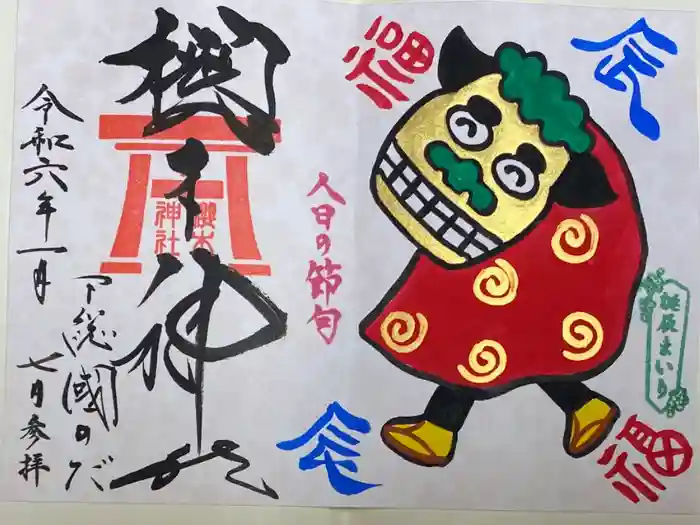 辰
福
誕辰まいり
福
人日の節句
辰
櫻木神社
櫻木
神社
下総國のだ
令和六年一月
七日参拝